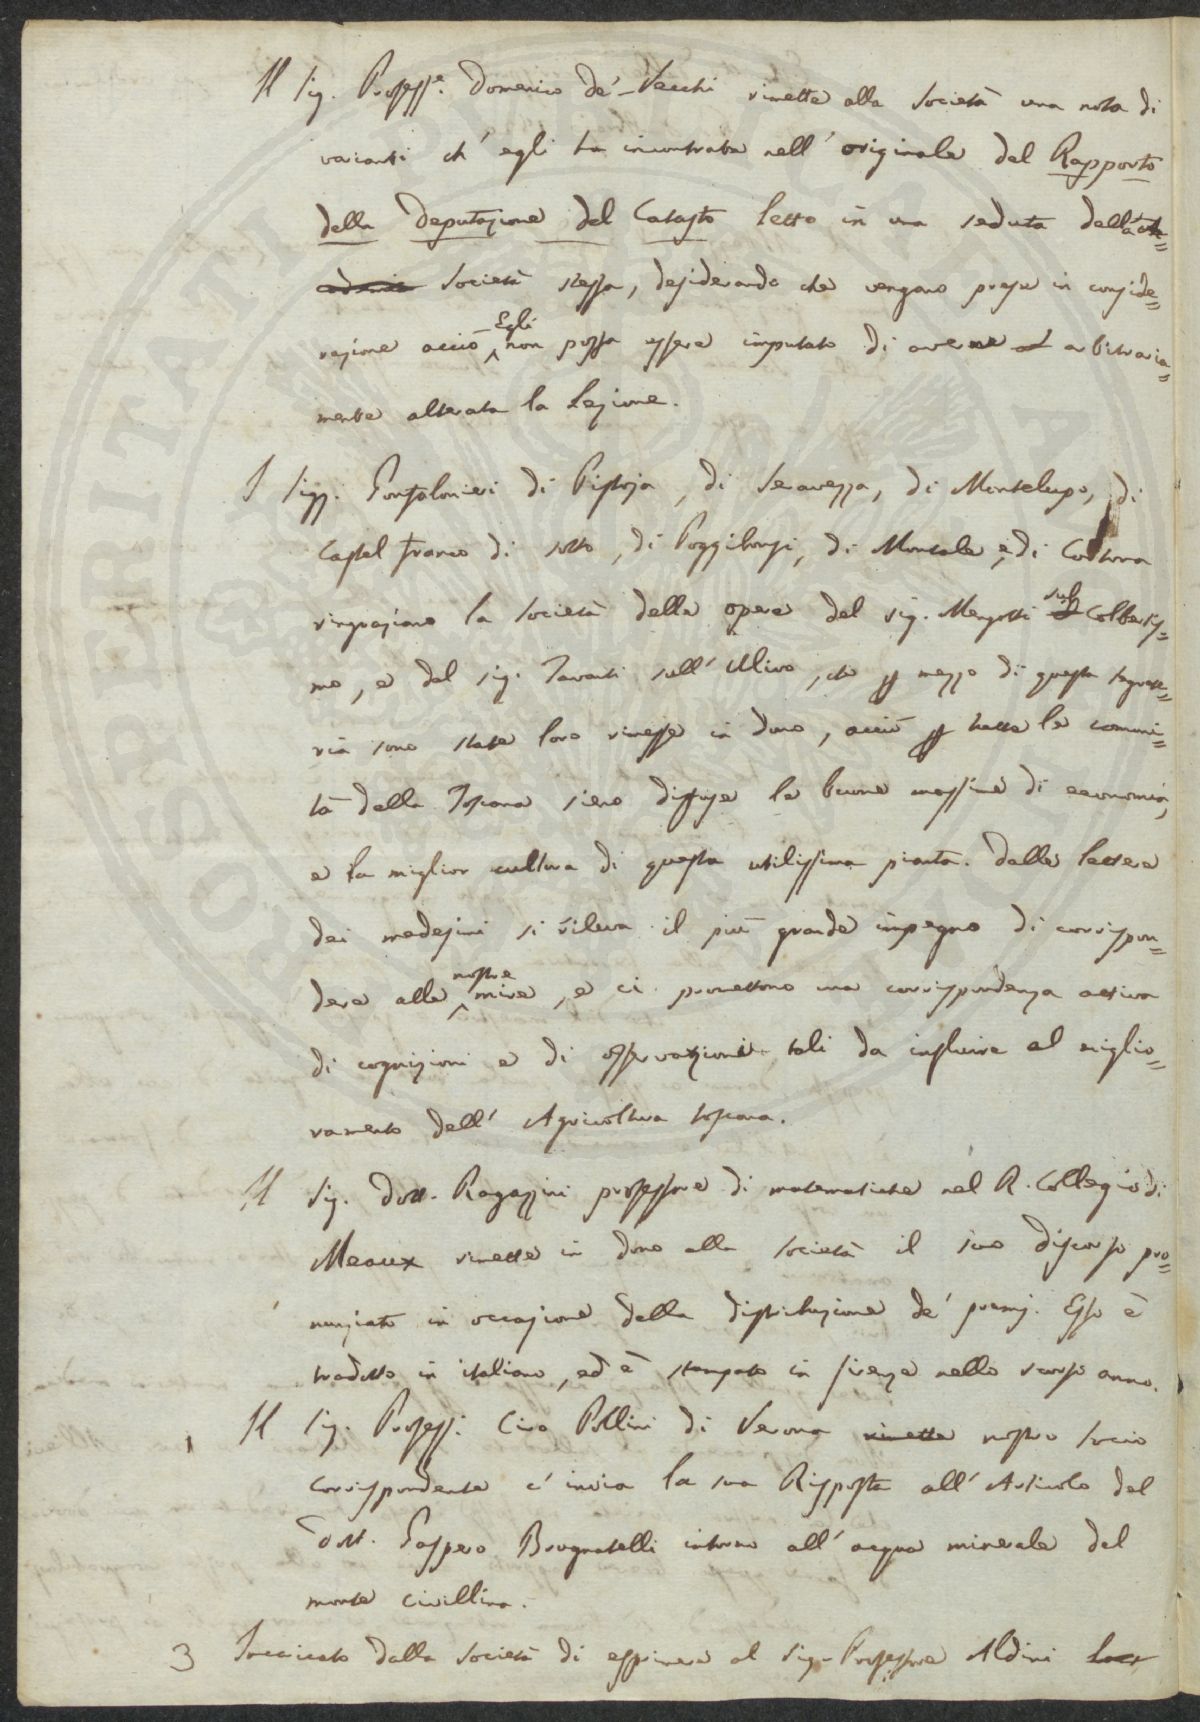 Il Sig. Profess.e Domenico de'-Vecchi rimette alla Società una nota di
varianti ch'egli ha incontrate nell'originale del Rapporto
della Deputazione del Catasto letto in una seduta dell'Ac=
cademia Società stessa, desiderando che vengano prese in conside=
razione acciò Egli non possa essere imputato di avere arbitraria=
mente alterata la Lezione.
I Sigg. Gonfalonieri di Pistoja, di Seravezza, di Montelupo, di
Castel Franco di sotto, di Poggibonsi, di Montale, e di Cortona
ringraziano la Società delle opere del sig. Mengotti sul Colbertis=
mo, e del sig. Tavanti sull'Ulivo, che p mezzo di questa Segrete=
ria sono state loro rimesse in dono, acciò p tutte le comuni=
tà della Toscana sieno diffuse le buone massime di economia,
e la miglior cultura di questa utilissima pianta. Dalle lettere
dei medesimi si rileva il più grande impegno di corrispon=
dere alle nostre mire, e ci promettono una corrispondenza attiva
di cognizioni e di osservazioni tali da influire al miglio=
ramento dell'Agricoltura toscana.
Il Sig. Dott. Ragazzini professore di matematiche nel R. Collegio di
Meaux rimette in dono alla Società il suo discorso pro=
nunziato in occasione della distribuzione de' premj. Esso è
tradotto in italiano, ed è stampato in Firenze nello scorso anno.
Il Sig. Profess. Ciro Pollini di Verona rimette nostro socio
corrispondente c'invia la sua Risposta all'Articolo del
Dott. Gaspero Brugnatelli intorno all'acqua minerale del
monte civillina.
3 Incaricato dalla Società di esprimere al Sig. Professore Aldini